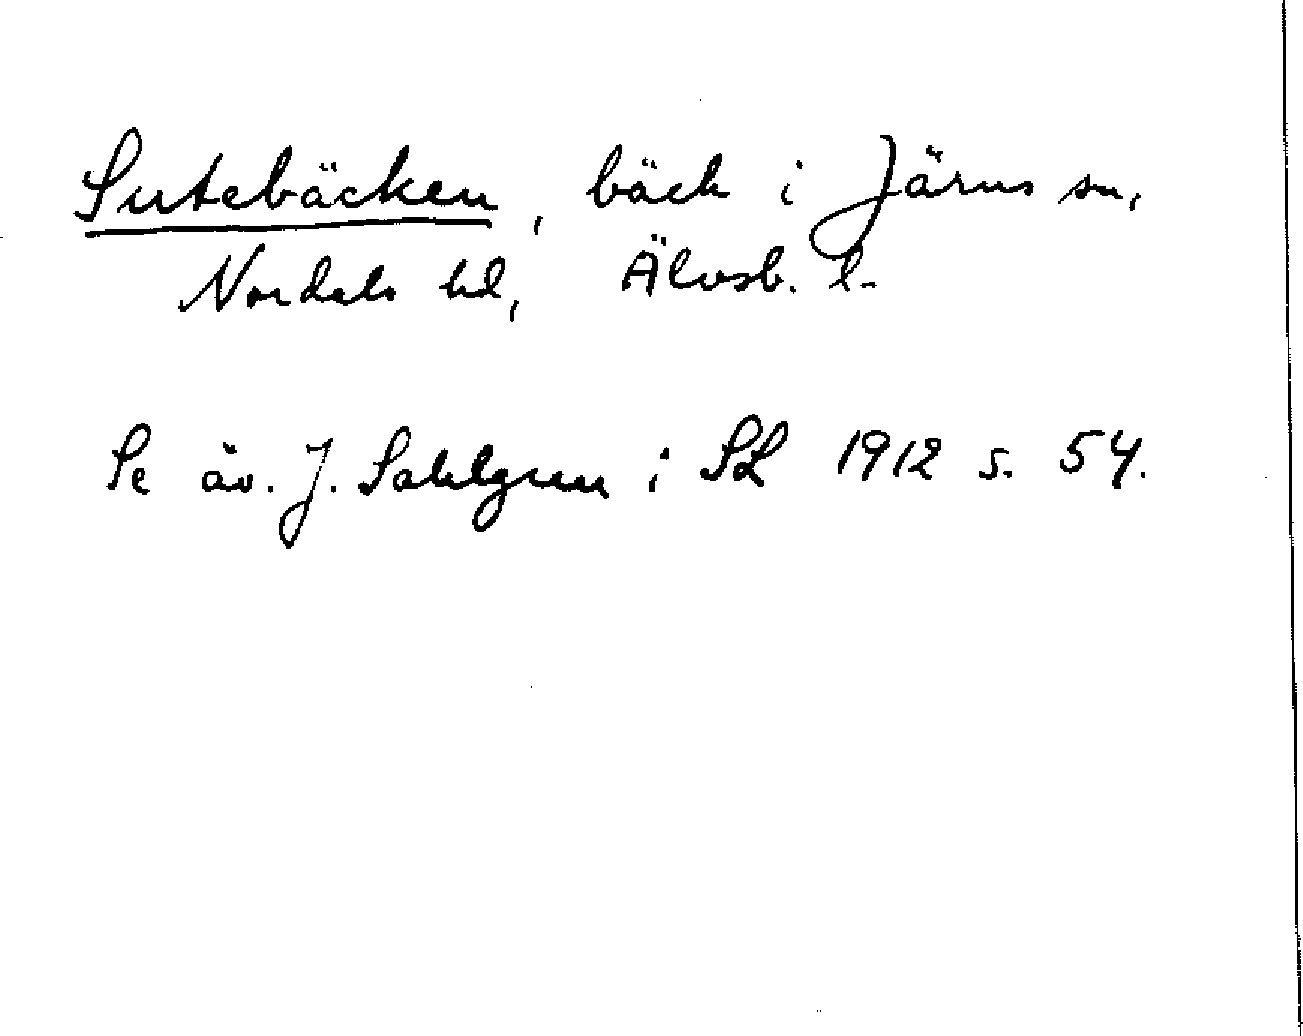 Sutebäcken, bäck i Järns sn,
Nordals hd, Älvsb. l.
Se äv. J. Sahlgren i SL 1912 s. 54.